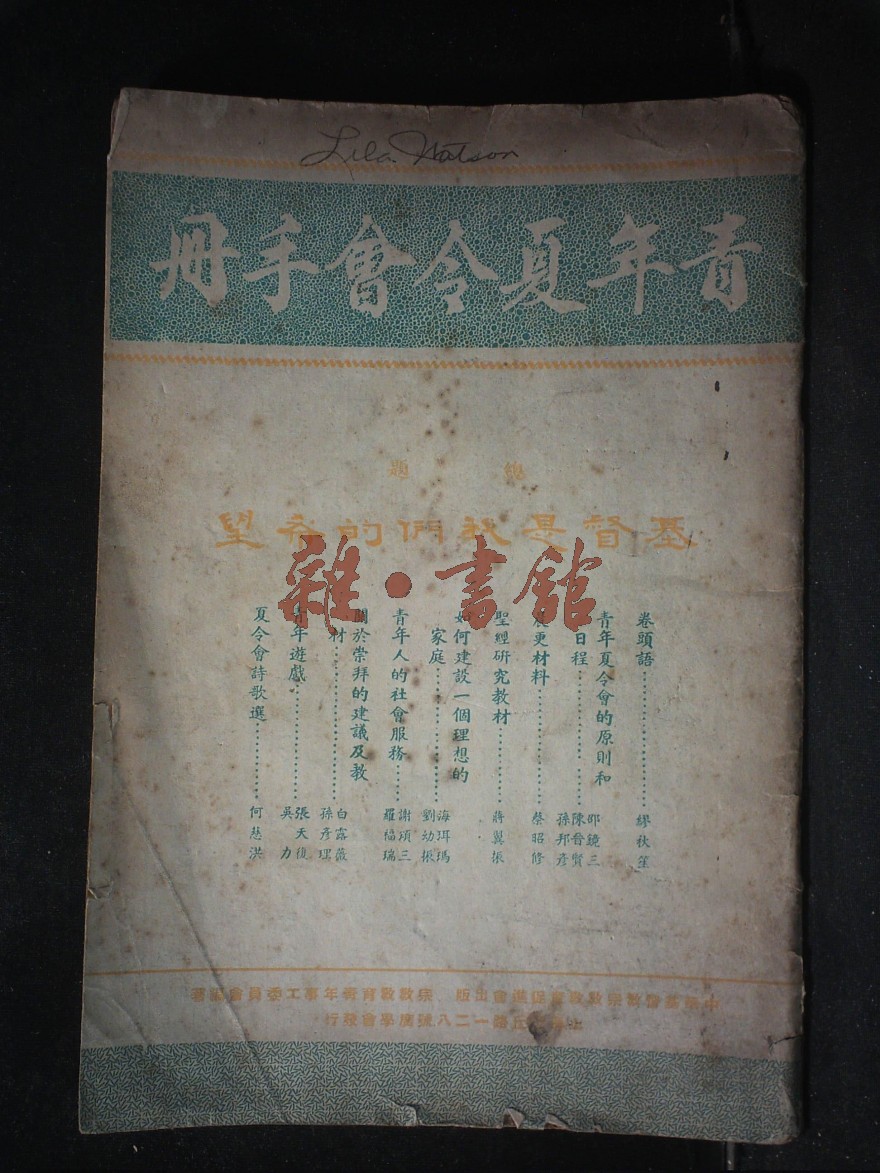 Lila Watson
青年夏令會手冊
總題
基督是我們的希望
雜·書館
卷頭語 繆秋笙
青年夏令會的原則和
日程 邵鏡三 陳晉賢 孫邦彥
晨更材料 蔡昭修
聖經研究教材 蔣翼振
如何建設一個理想的
家庭 海珥瑪 劉幼振
青年人的社會服務 謝頌三 羅福瑞
關於崇拜的建議及教
材 白露薇 孫彥理
青年遊戲 張天復 吳力
夏令會詩歌選 何慈洪
中華基督教宗教教育促進會出版 宗教教育青年事工委員會編著
上海 路一二八號廣學會發行